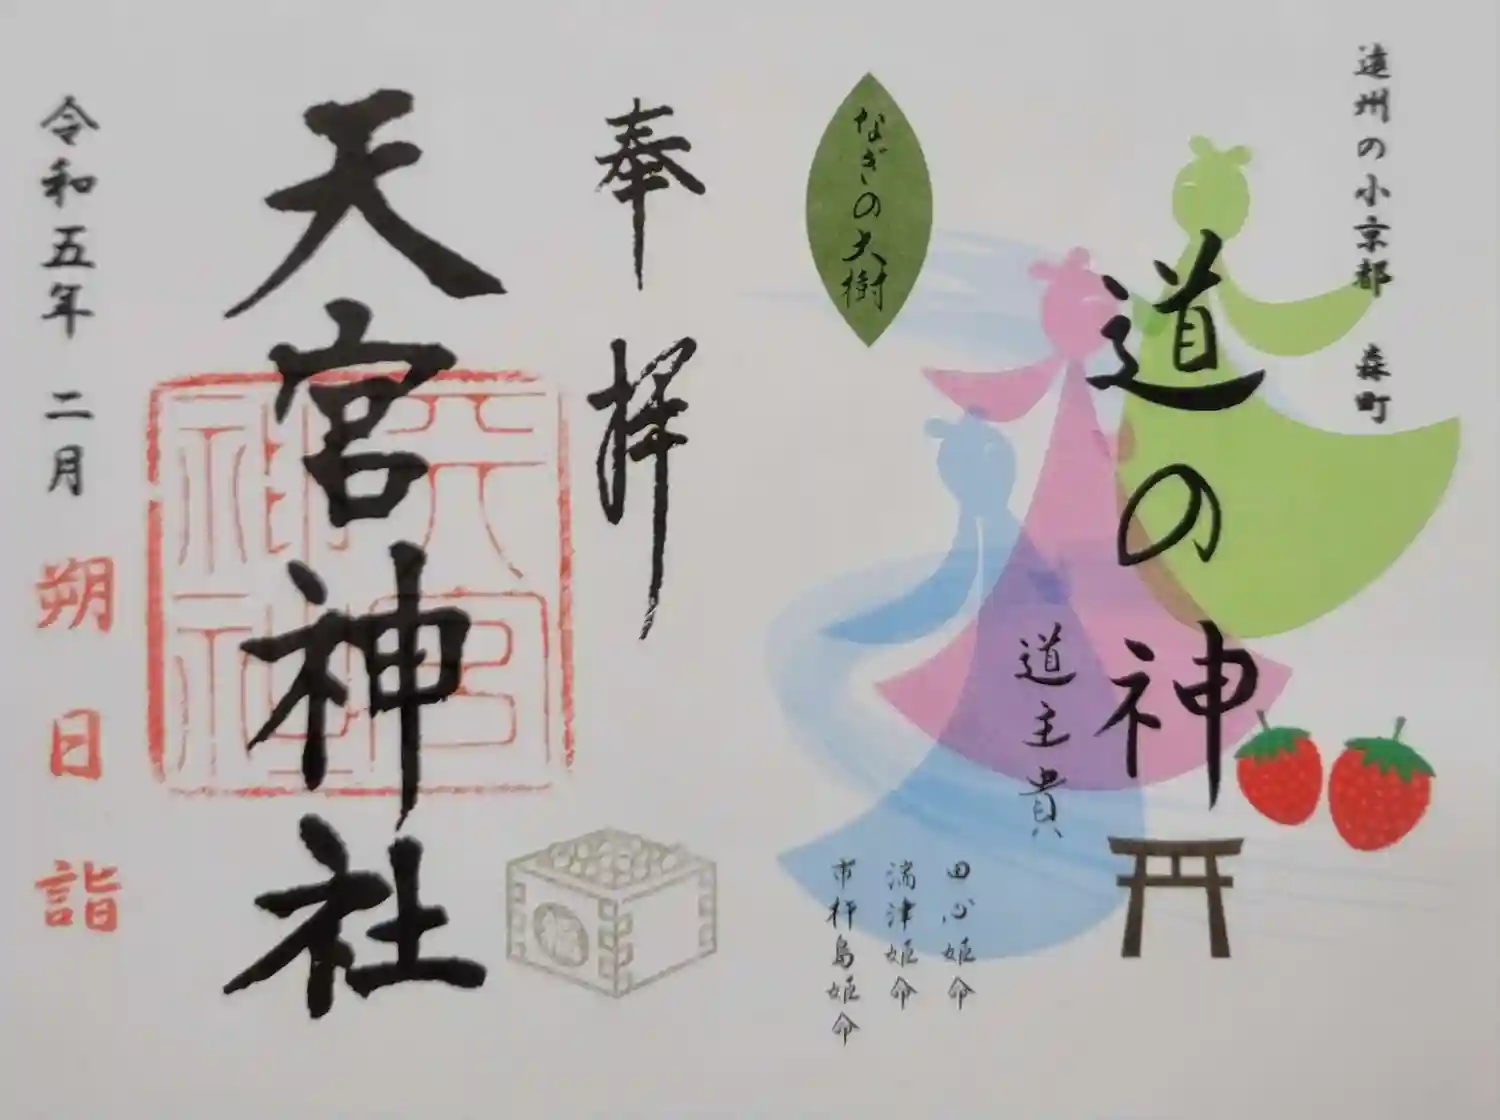 遠州の小京都　森町
道の神
道主貴
なぎの大樹
田心姫命
湍津姫命
市杵島姫命
奉拝
天宮神社
天宮
神社
福
令和五年　二月
朔日詣